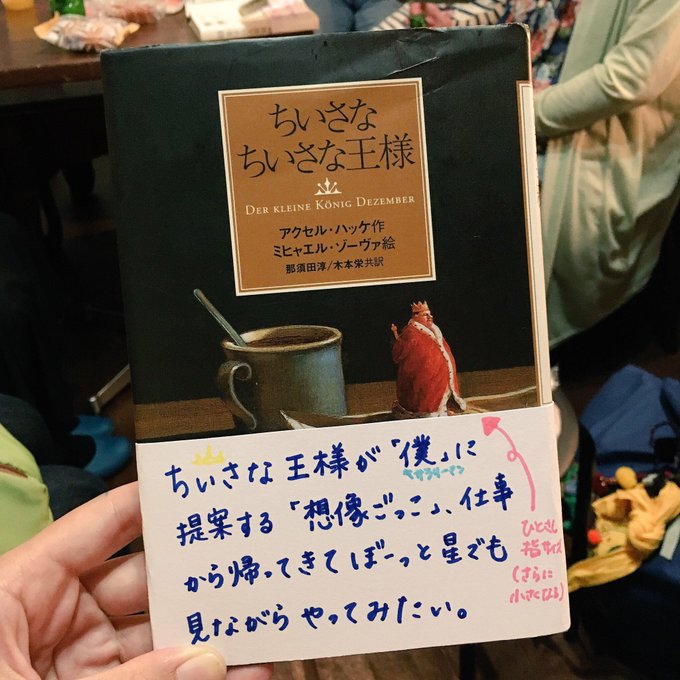 ちいさな
ちいさな王様
DER KLEINE KÖNIG DEZEMBER
アクセル・ハッケ作
ミヒャエル・ゾーヴァ絵
那須田淳/木本栄共訳
ちいさな王様が「僕」に
サラリーマン
提案する「想像ごっこ」、仕事
から帰ってきてぼーっと星でも
見ながらやってみたい。
ひとさし
指サイズ
(さらに
小さくなる)